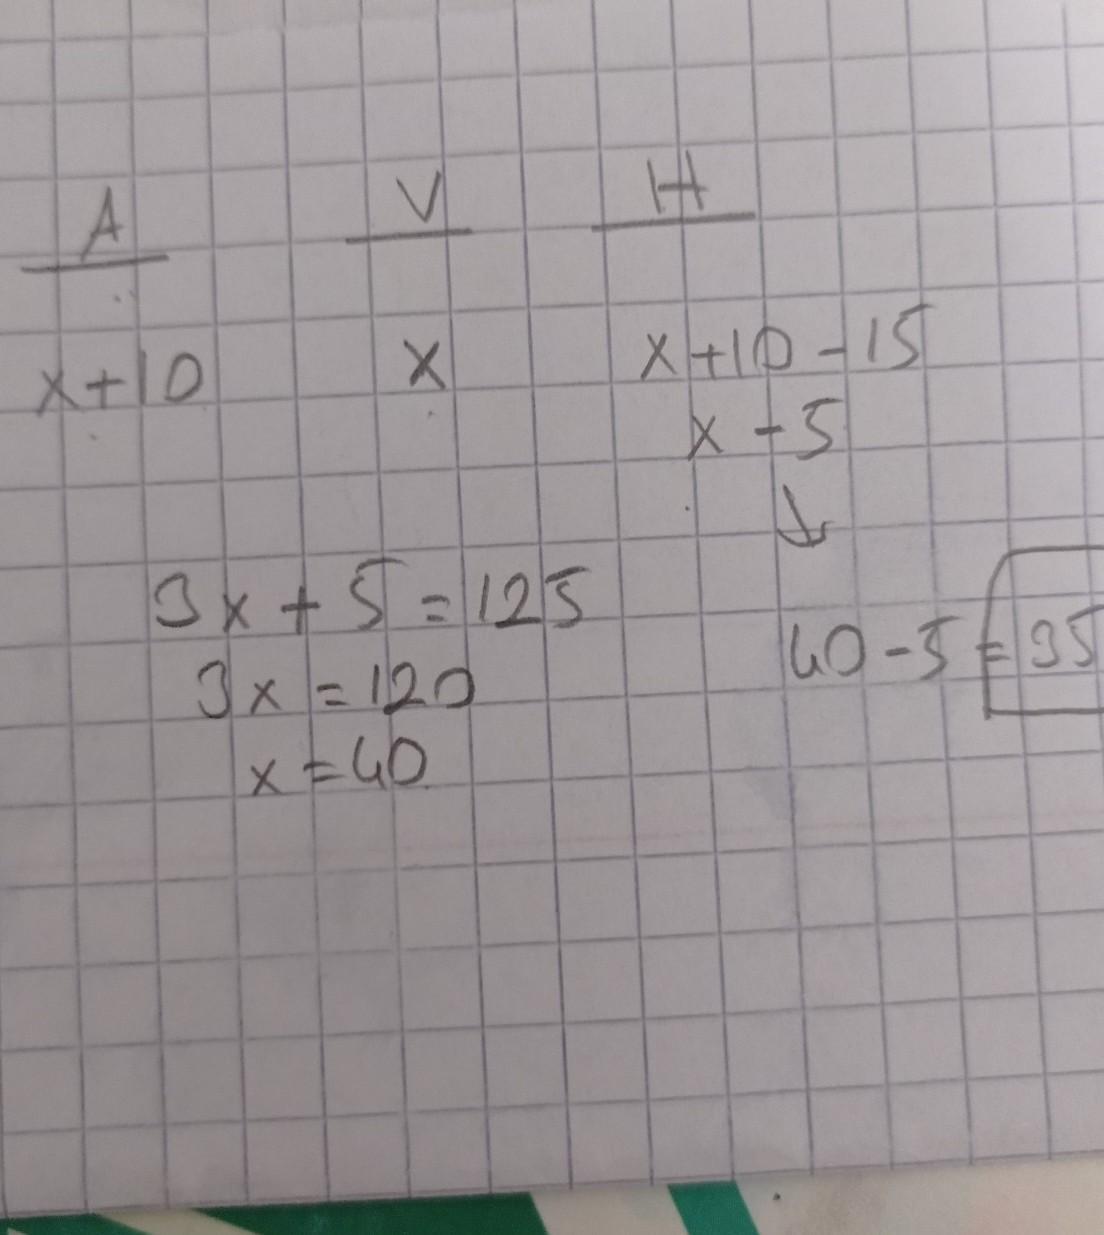 A V H
x+10 x x+10-15
x-5
3x+5=125
3x=120
x=40
40-5=35